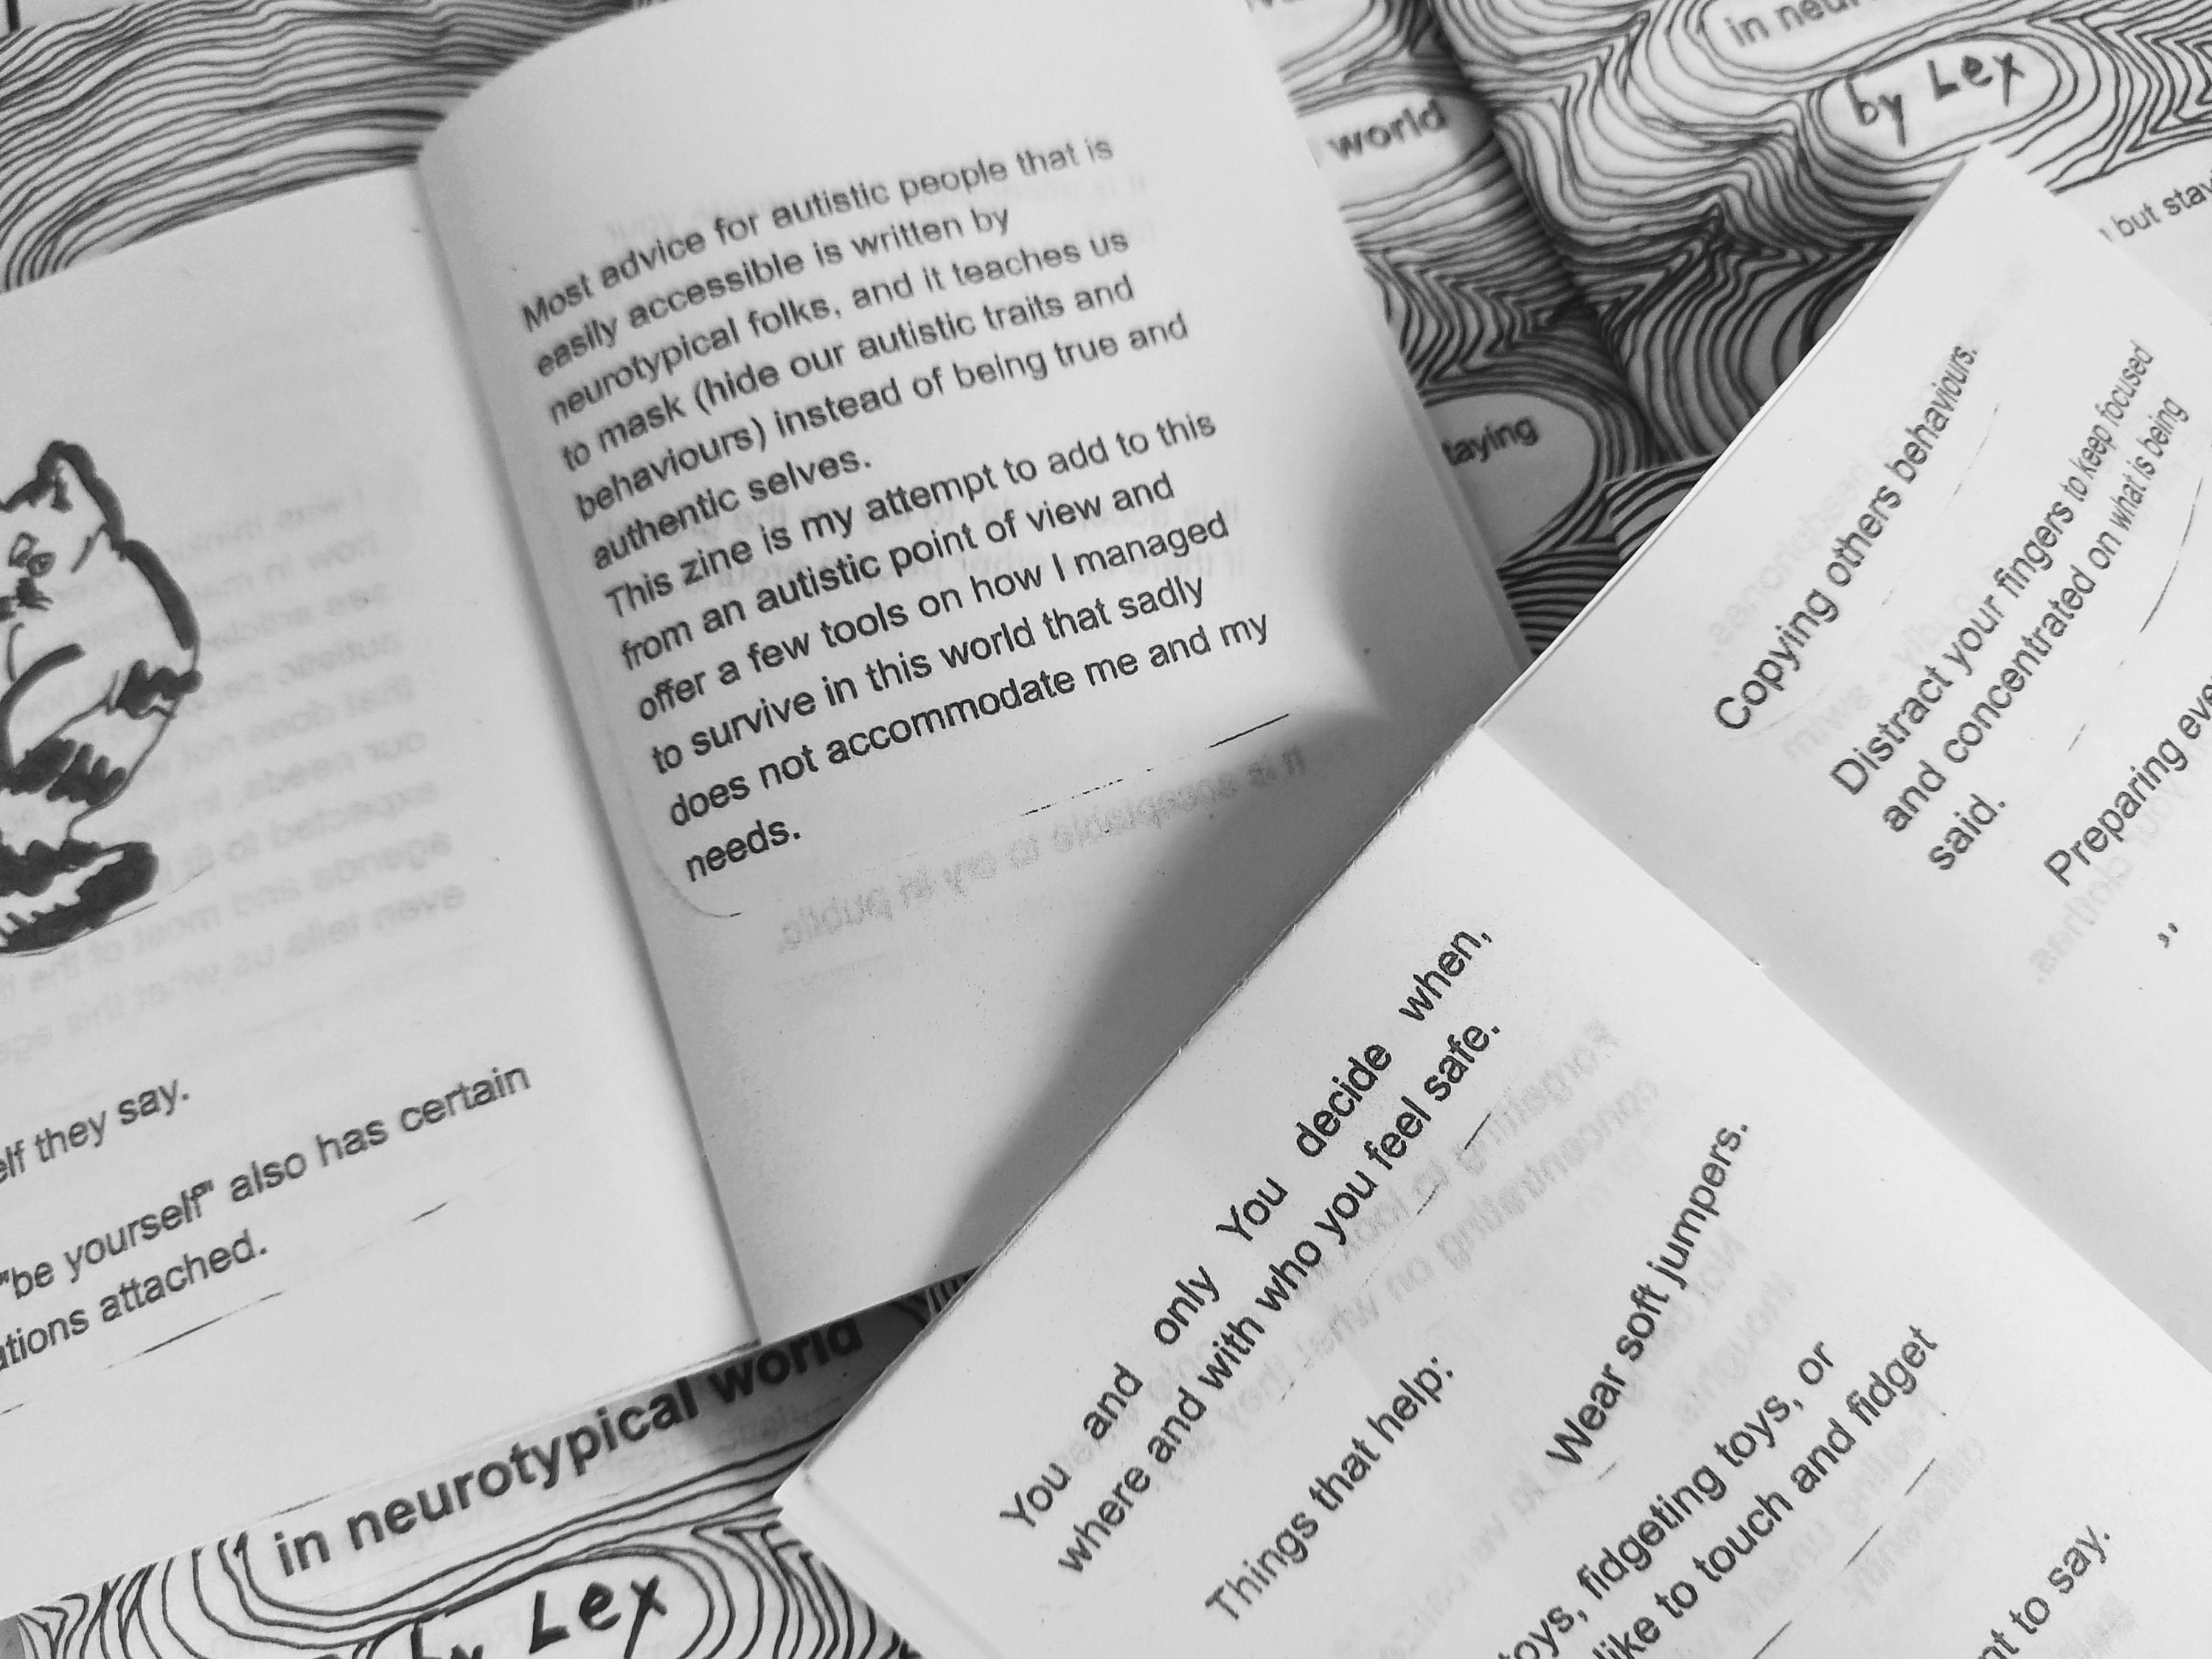 in neur
by Lex
world
but stay
taying
Most advice for autistic people that is
easily accessible is written by
neurotypical folks, and it teaches us
to mask (hide our autistic traits and
behaviours) instead of being true and
authentic selves.
This zine is my attempt to add to this
from an autistic point of view and
offer a few tools on how I managed
to survive in this world that sadly
does not accommodate me and my
needs.
elf they say.
"be yourself" also has certain
ations attached.
in neurotypical world
by Lex
Copying others behaviours.
Distract your fingers to keep focused
and concentrated on what is being
said.
Preparing eve
You and only You decide when,
where and with who you feel safe.
Things that help:
Wear soft jumpers.
toys, fidgeting toys, or
like to touch and fidget
nt to say.